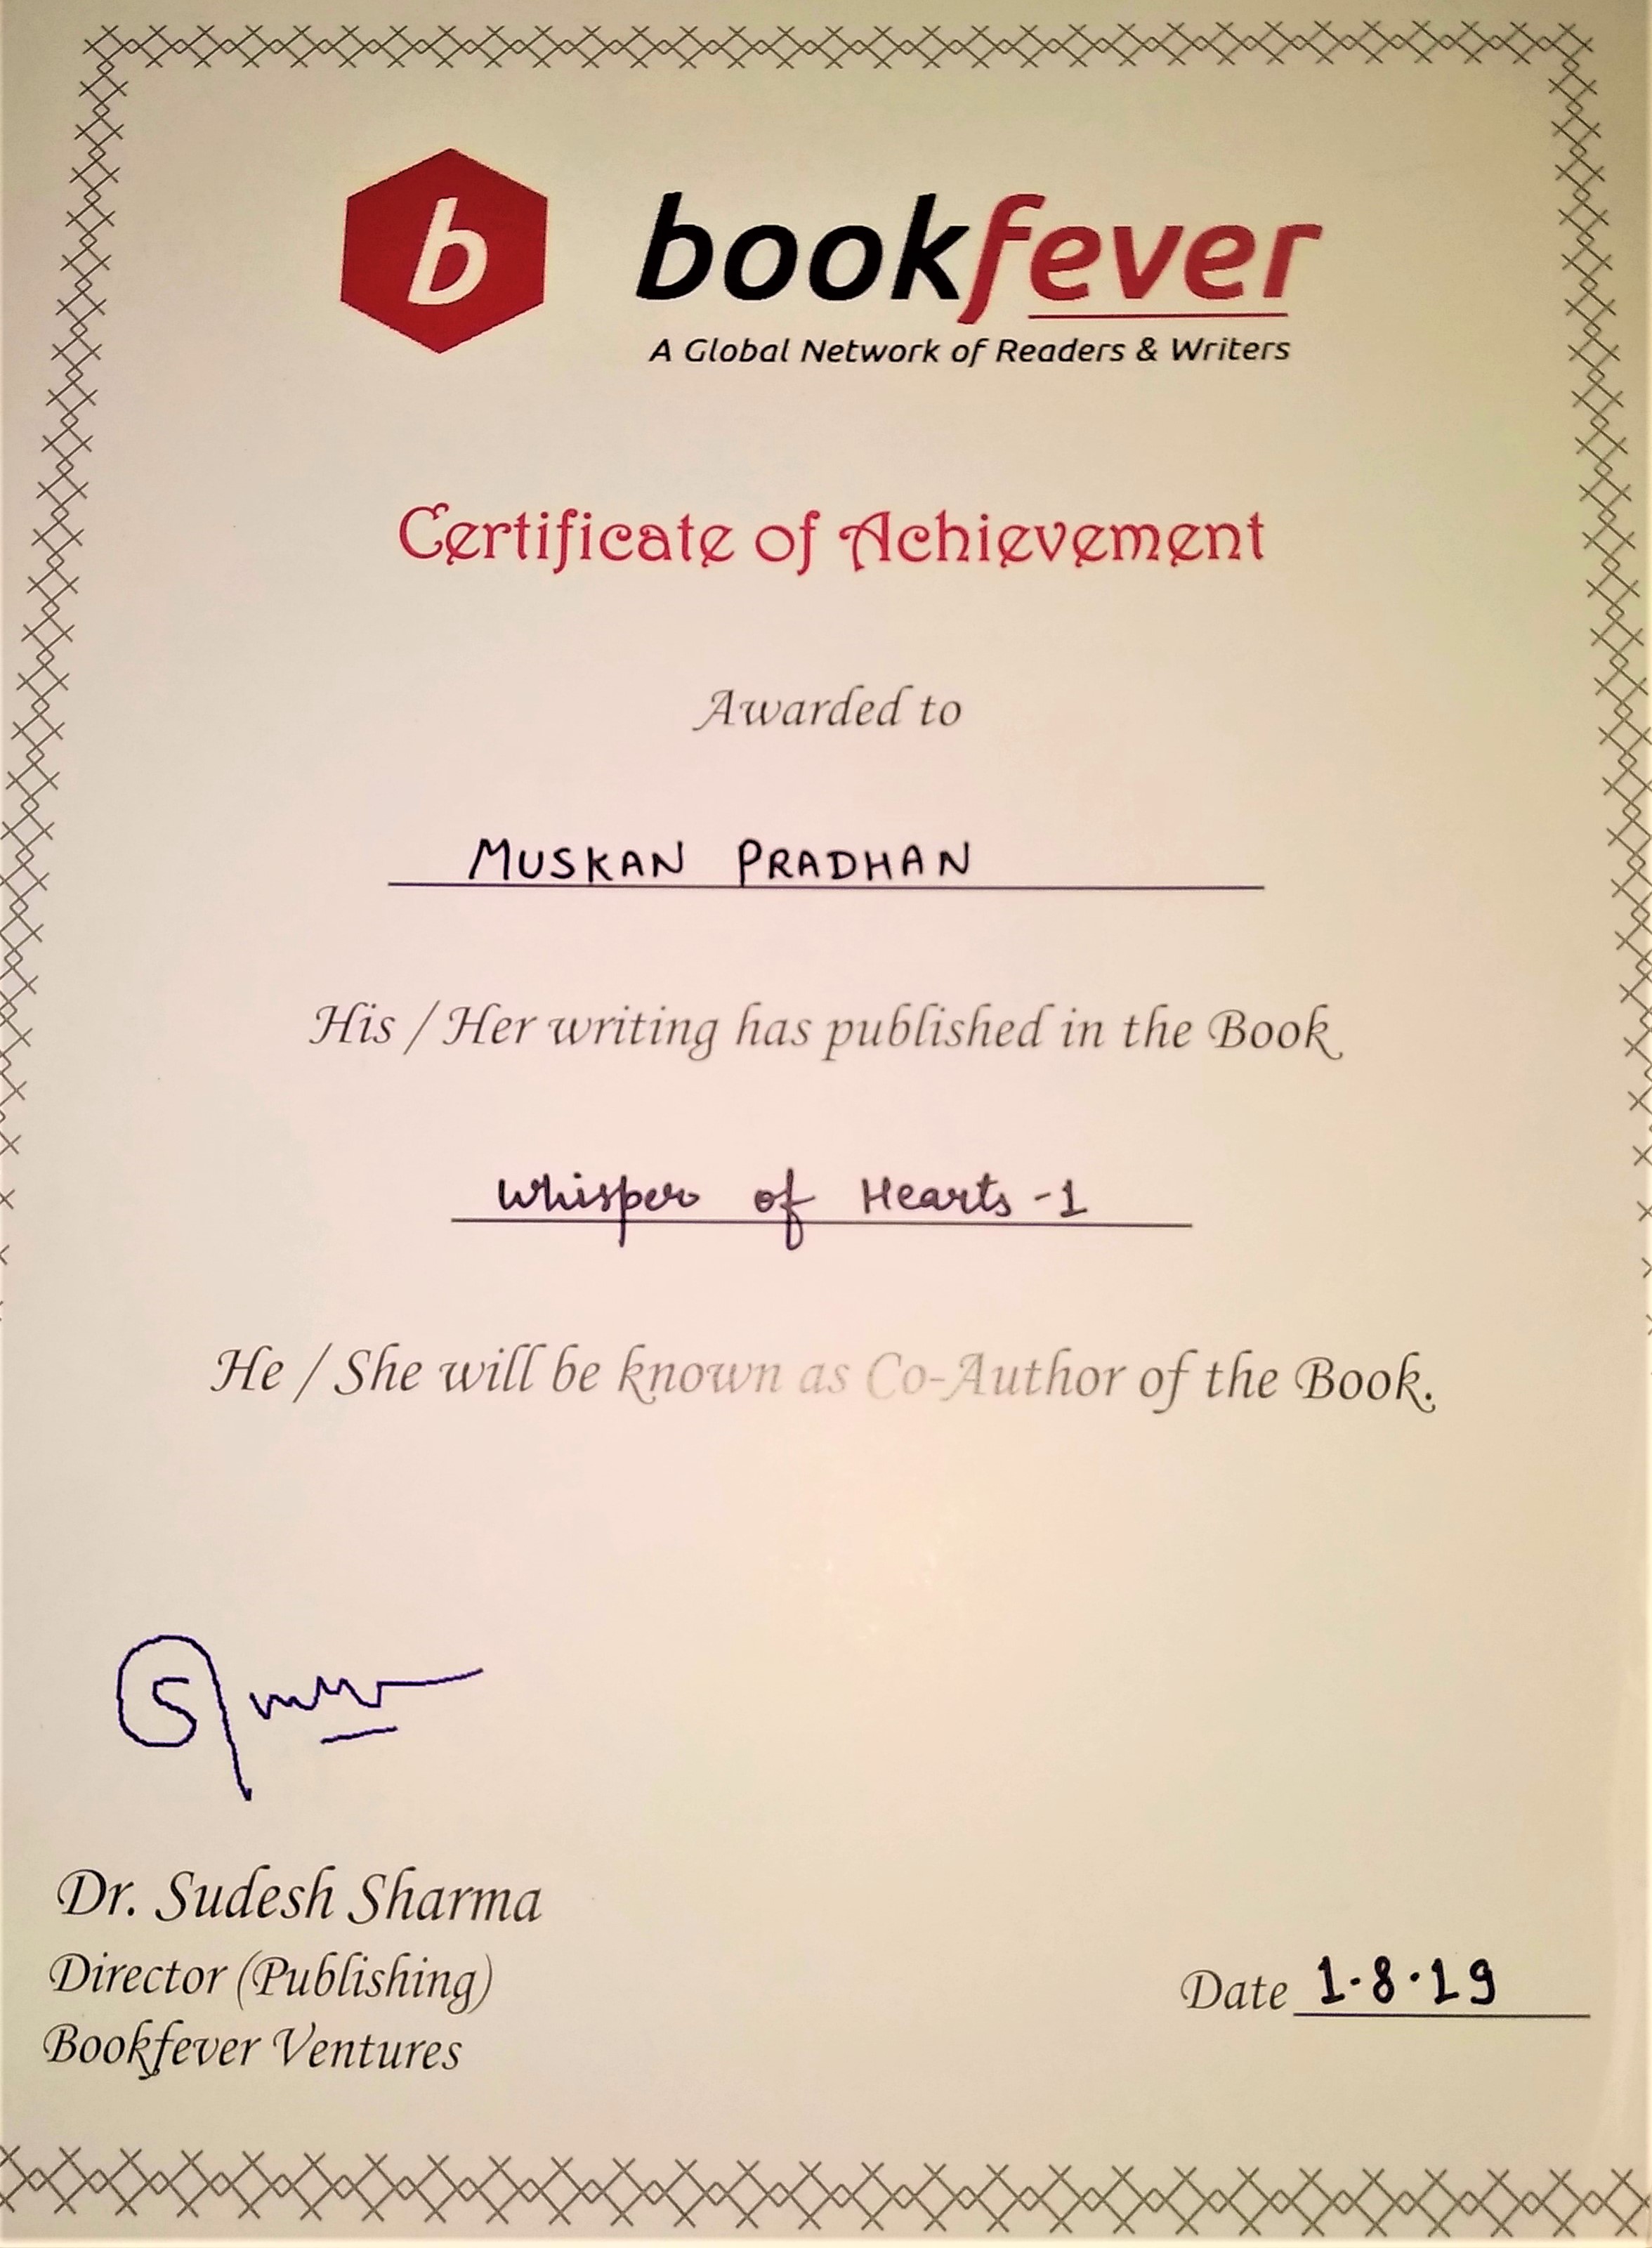 b
bookfever
A Global Network of Readers & Writers
Certificate of Achievement
Awarded to
MUSKAN PRADHAN
His / Her writing has published in the Book
Whisper of Hearts -1
He / She will be known as Co-Author of the Book.
Dr. Sudesh Sharma
Director (Publishing)
Bookfever Ventures
Date 1.8.19